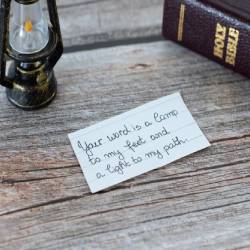 Your word is a lamp
to my feet and
a light to my path.
HOLY
BIBLE